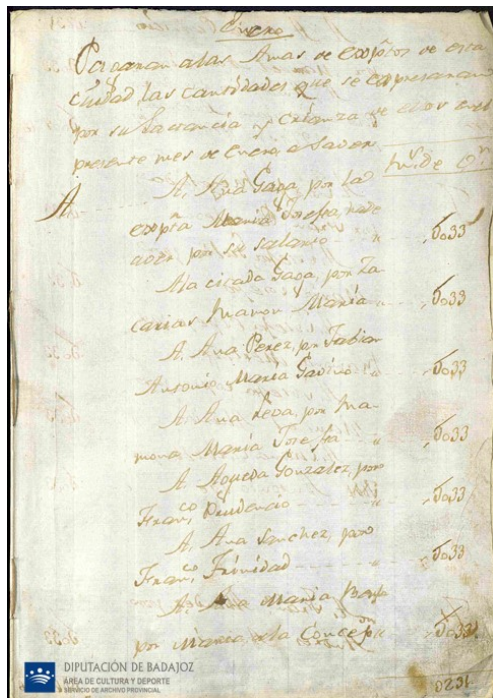 Enero
Pagaran a las Amas de expttos de esta
ciudad las cantidades que se expresaran
por su lactancia y crianza de ellos en el
presente mes de Enero a saver
A. Ana Gaga, por la
A. expta Maria Josefa, 
aver por su salario 5033
Gaga, por Za-
carias Ramon Maria 5033
A. Ana Perez, por Fabian
Antonio Maria 5033
A. Ana Leva, por Ra-
mona Maria Josefa 5033
A. Agueda Gonzalez, por
Franco Prudencio 5033
A. Ana Sanchez, por
Franco Trinidad 5033
A. Maria
por Maria de la Concepon 5033
0231
DIPUTACIÓN DE BADAJOZ
ÁREA DE CULTURA Y DEPORTE
SERVICIO DE ARCHIVO PROVINCIAL